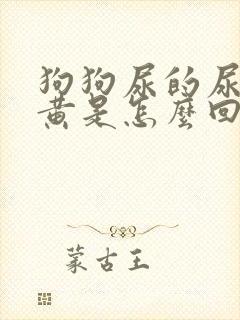 狗狗尿的尿
黄是怎麼回
蒙古王